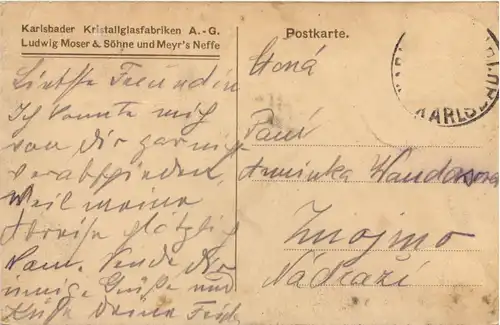 Karlsbader Kristallglasfabriken A.-G.
Ludwig Moser & Söhne und Meyr's Neffe
Liebste Freundin
Ich konnte mich
von dir gar nicht
verabschieden,
Weil meine
Abreise plötzlich
kam. Sende dir
innige Grüße und
Küße Deine
Postkarte.
KARLSB
Paní
Znojmo
Nádraží